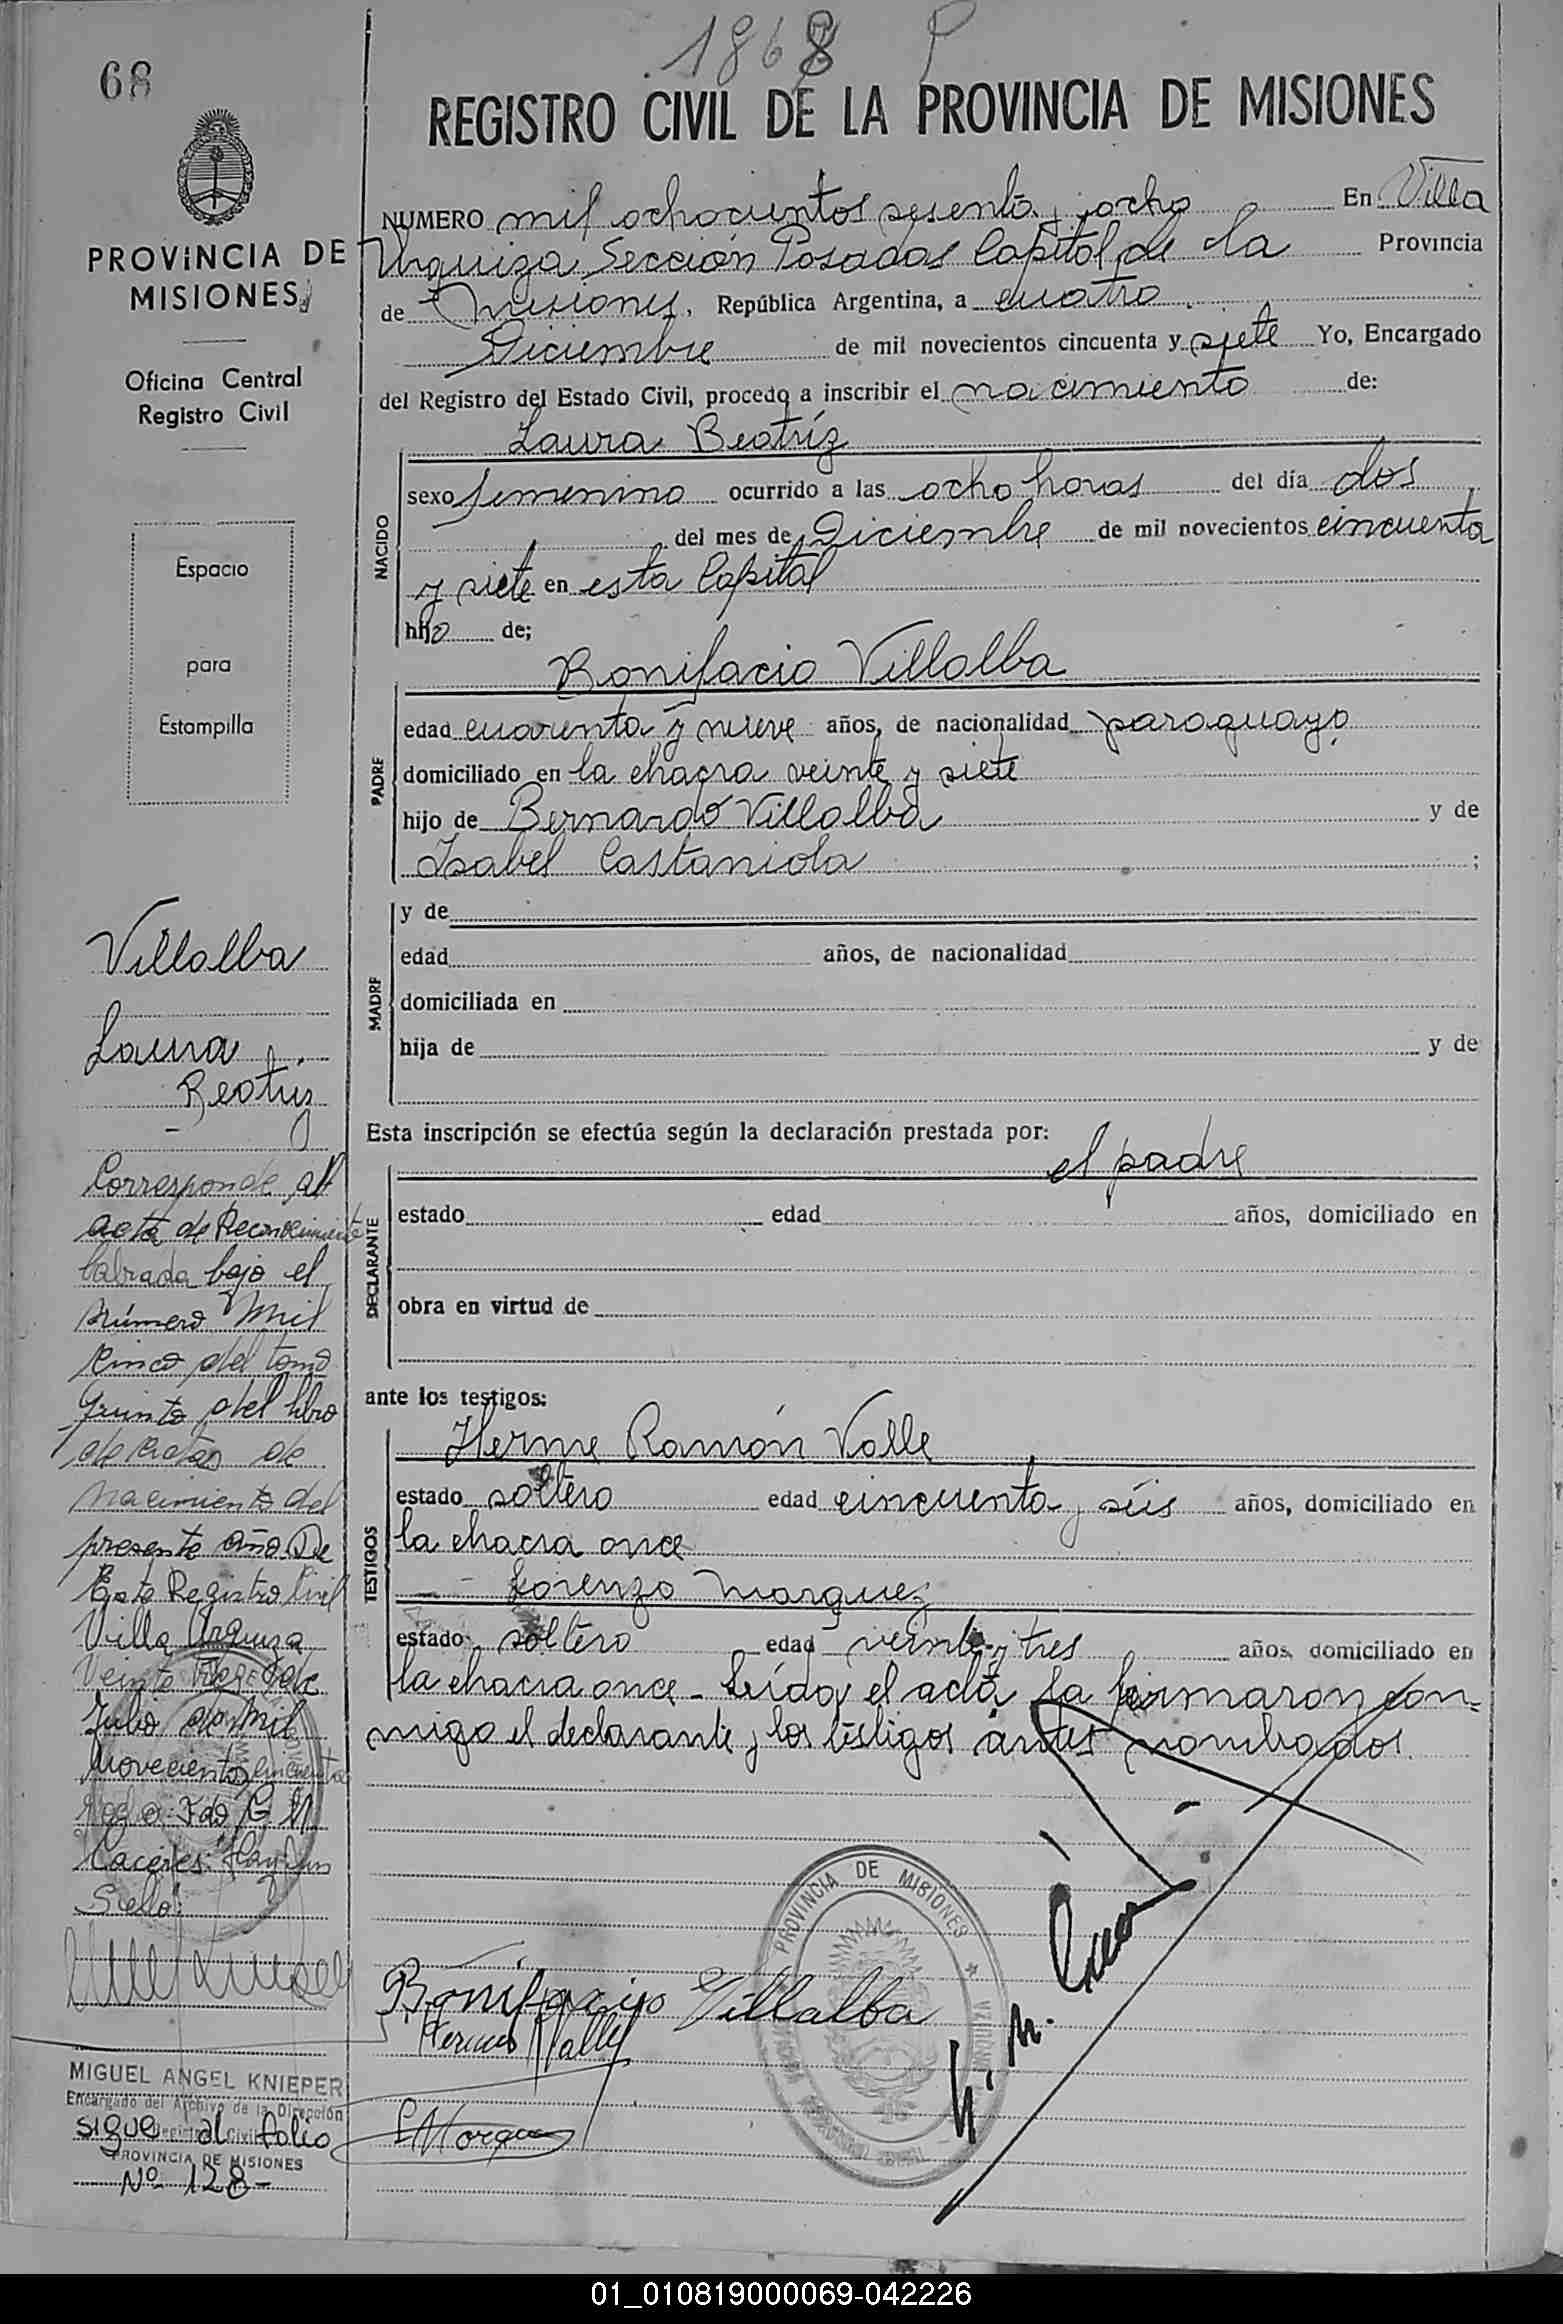 1868 P
68
REGISTRO CIVIL DE LA PROVINCIA DE MISIONES
PROVINCIA DE
MISIONES
Oficina Central
Registro Civil
Espacio
para
Estampilla
NUMERO mil ochocientos sesenta y ocho En Villa
Urquiza Sección Posadas Capital de la Provincia
de Misiones, República Argentina, a cuatro
Diciembre de mil novecientos cincuenta y siete Yo, Encargado
del Registro del Estado Civil, procedo a inscribir el nacimiento de:
Laura Beatríz
NACIDO
sexo femenino ocurrido a las ocho horas del día dos
del mes de Diciembre de mil novecientos cincuenta
y siete en esta Capital
hijo de;
Bonifacio Villalba
PADRE
edad cuarenta y nueve años, de nacionalidad paraguayo
domiciliado en la chacra veinte y siete
hijo de Bernardo Villalba y de
Isabel Castaniola ;
MADRE
y de
edad años, de nacionalidad
domiciliada en
hija de y de
Esta inscripción se efectúa según la declaración prestada por:
el padre
DECLARANTE
estado edad años, domiciliado en
obra en virtud de
ante los testigos:
TESTIGOS
Herme Ramón Valle
estado soltero edad cincuenta y séis años, domiciliado en
la chacra once
Lorenzo Marquez
estado soltero edad veinte y tres años, domiciliado en
la chacra once - Leída el acta la firmaron con-
migo el declarante y los testigos antes nombrados.
Villalba
Laura
Beatriz
Corresponde al
acta de Reconocimiento
labrada bajo el
número mil
cinco del tomo
quinto del libro
de actas de
nacimiento del
presente año De
Este Registro Civil
Villa Urquiza
Veinte de
Julio de Mil
Novecientos cincuenta
y ocho: Fdo G. M.
Caceres: Hay un
Sello:
Bonifacio Villalba
Valle
L Marquez
PROVINCIA DE MISIONES
MIGUEL ANGEL KNIEPER
Encargado del Archivo de la Dirección
PROVINCIA DE MISIONES
sigue al folio
Nº 128-
01_010819000069-042226